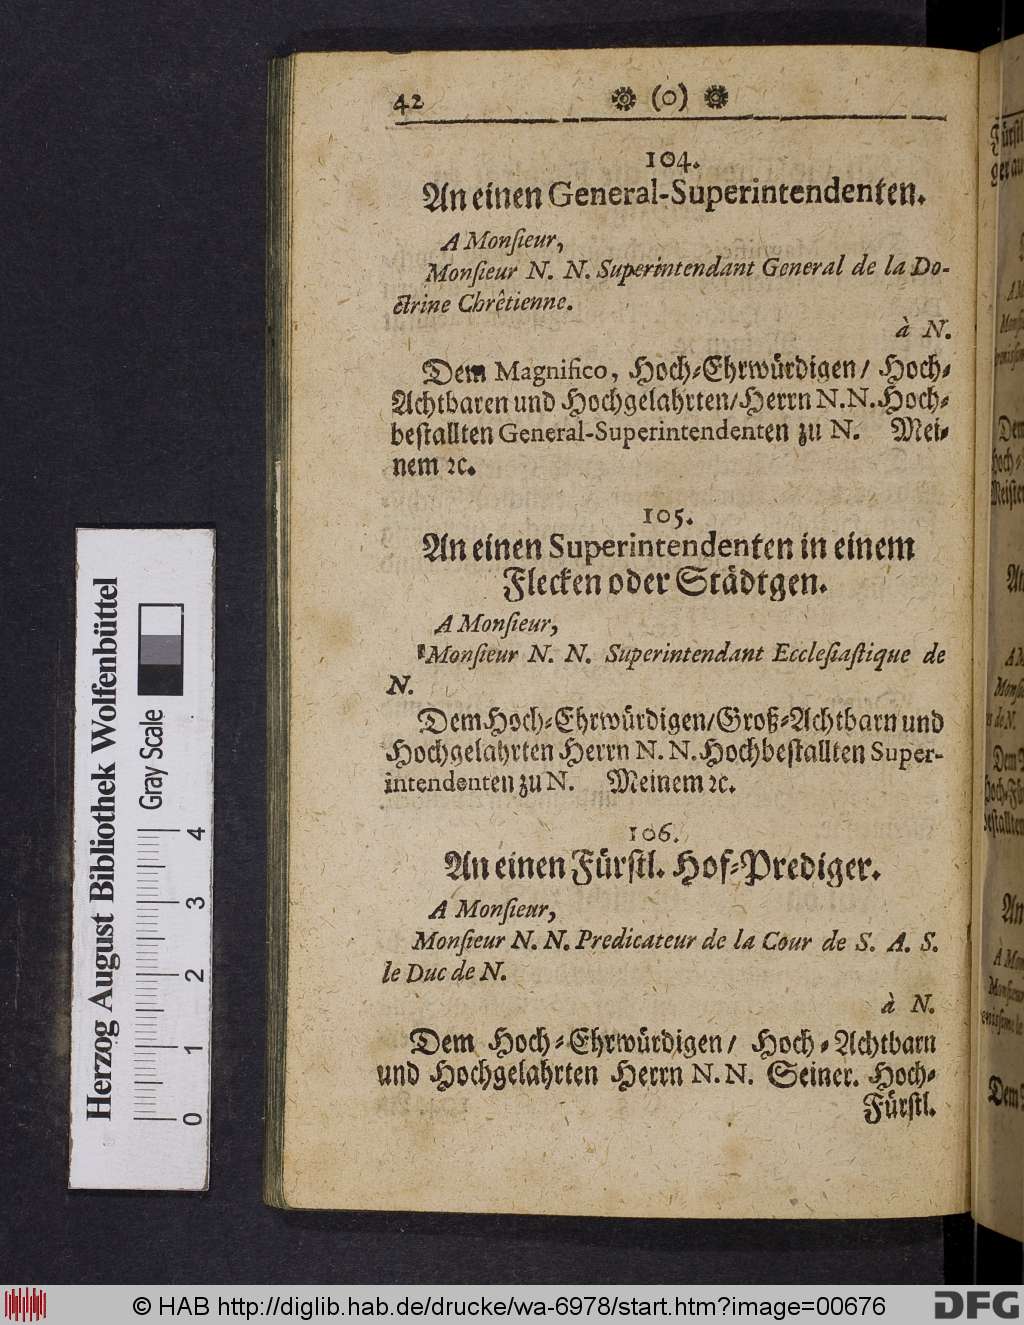 42 (o)
104.
An einen General-Superintendenten.
A Monſieur,
Monſieur N. N. Superintendant General de la Do-
ctrine Chrêtienne.
à N.
Dem Magnifico, Hoch-Ehrwürdigen/ Hoch-
Achtbaren und Hochgelahrten/Herrn N. N. Hoch-
beſtallten General-Superintendenten zu N. Mei-
nem ꝛc.
105.
An einen Superintendenten in einem
Flecken oder Städtgen.
A Monſieur,
Monſieur N. N. Superintendant Eccleſiaſtique de
N.
Dem Hoch-Ehrwürdigen/Groß-Achtbarn und
Hochgelahrten Herrn N. N. Hochbeſtallten Super-
intendenten zu N. Meinem ꝛc.
106.
An einen Fürſtl. Hof-Prediger.
A Monſieur,
Monſieur N. N. Predicateur de la Cour de S. A. S.
le Duc de N.
à N.
Dem Hoch-Ehrwürdigen/ Hoch-Achtbarn
und Hochgelahrten Herrn N. N. Seiner. Hoch-
Fürſtl.
Herzog August Bibliothek Wolfenbüttel
Gray Scale
0 1 2 3 4
© HAB http://diglib.hab.de/drucke/wa-6978/start.htm?image=00676
DFG